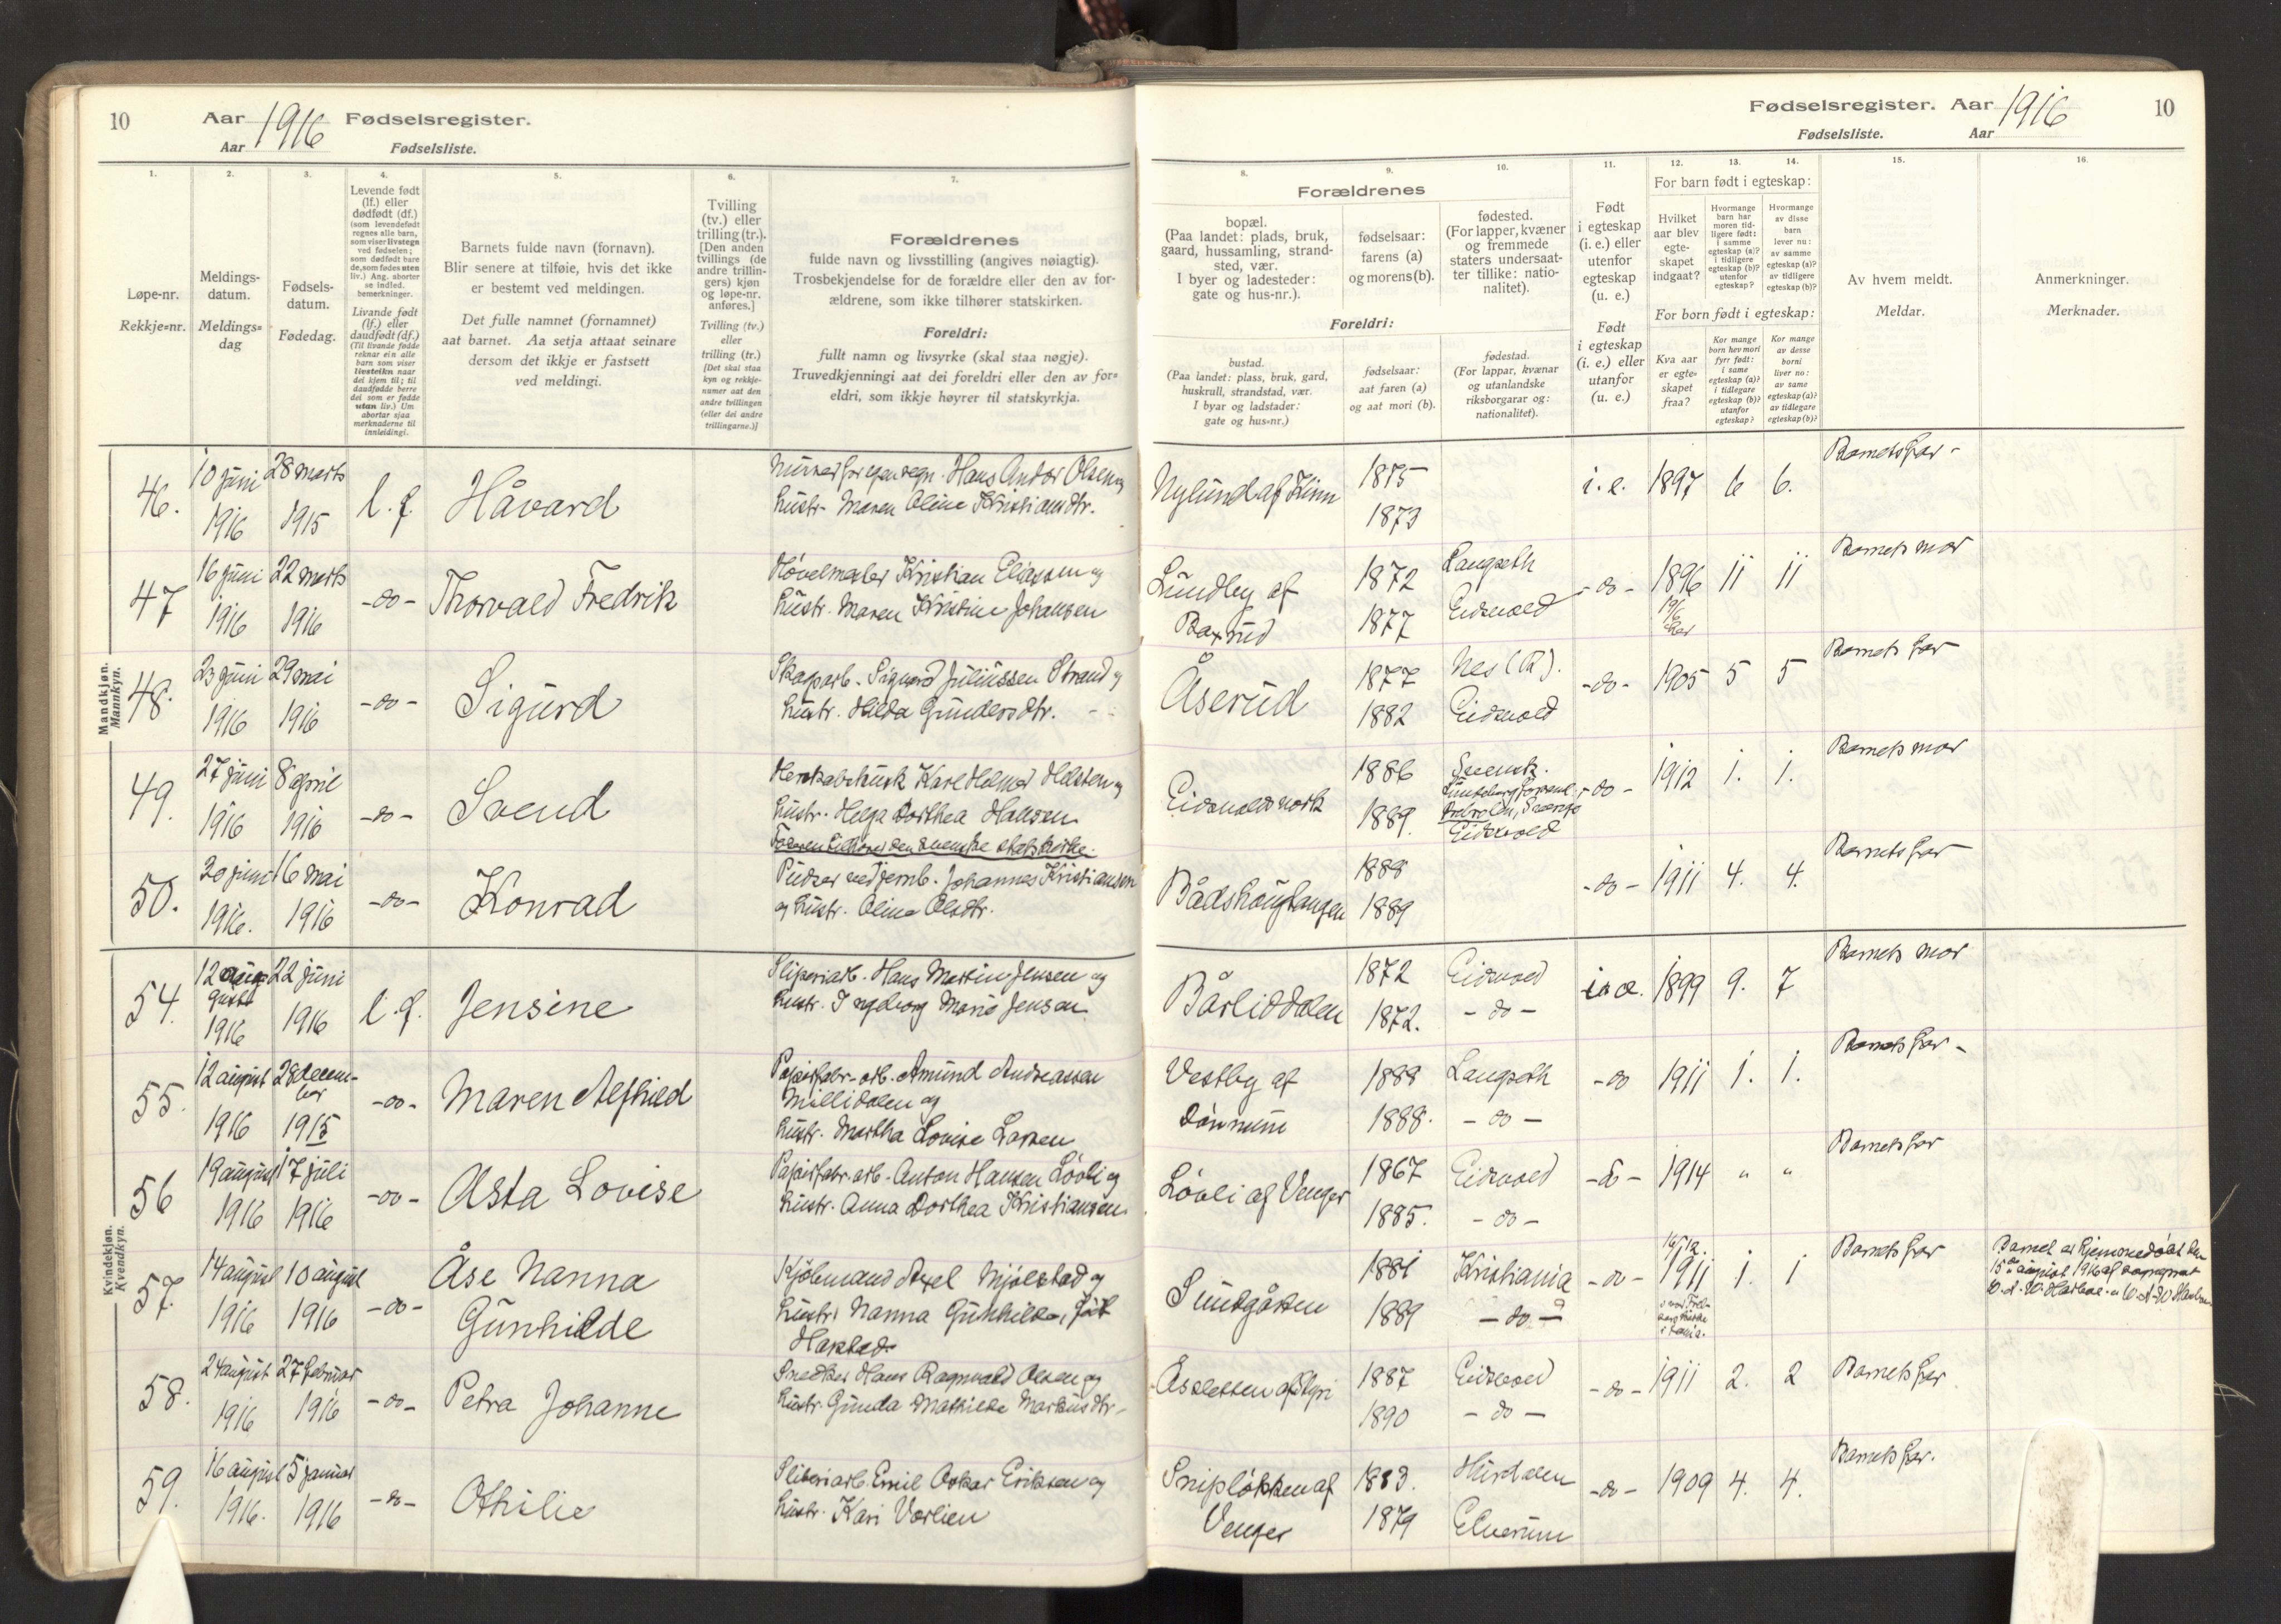 10 Aar 1916 Fødselsregister.
Aar Fødselsliste.
1. 2. 3. 4. 5. 6. 7.
Løpe-nr.
Rekkje=nr.
Meldings-
datum.
Meldings=
dag
Fødsels-
datum.
Fødedag.
Levende født
(lf.) eller
dødfødt (df.)
(som levendefødt
regnes alle barn,
som viser livstegn
ved fødselen;
som dødfødt bare
de, som fødes uten
liv.) Ang. aborter
se indled.
bemerkninger.
Livande født
(lf.) eller
daudfødt (df.)
(Til livande fødde
reknar ein alle
barn som viser
livsteikn naar
dei kjem til; til
daudfødde berre
dei som er fødde
utan liv.) Um
abortar sjaa
merknaderne til
innleidingi.
Barnets fulde navn (fornavn).
Blir senere at tilføie, hvis det ikke
er bestemt ved meldingen.
Det fulle namnet (fornamnet)
aat barnet. Aa setja attaat seinare
dersom det ikkje er fastsett
ved meldingi.
Tvilling
(tv.) eller
trilling (tr.).
[Den anden
tvillings (de
andre trillin-
gers) kjøn
og løpe-nr.
anføres.]
Tvilling (tv.)
eller
trilling (tr.)
[Det skal staa
kyn og rekkje-
numer aat den
andre tvillingen
(eller dei andre
trillingarne.)]
Forældrenes
fulde navn og livsstilling (angives nøiagtig).
Trosbekjendelse for de forældre eller den av for-
ældrene, som ikke tilhører statskirken.
Foreldri:
fullt namn og livsyrke (skal staa nøgje).
Truvedkjenningi aat dei foreldri eller den av for=
eldri, som ikkje høyrer til statskyrkja.
Mandkjøn.
Mannkyn.
46. 10 juni 1916 28 marts 1915 l.f. Håvard
Hans Andor Olsen og
hustr. Maren Oline Kristiansdtr.
47 16 juni 1916 22 marts 1916 -do- Thorvald Fredrik
Høvelmester Kristian Eliassen og
hustr. Maren Kristine Johansen
48. 23 juni 1916 29 mai 1916 -do- Sigurd
Skogsarb. Sigvard Juliussen Strand og
hustr. Hilda Gundersdtr.
49. 27 juni 1916 8 april 1916 -do- Svend
Karl Helmer Helsten og
hustr. Helga Dorthea Hansen
Faderen tilhører den svenske statskirke.
50. 20 juni 1916. 16 mai 1916 -do- Konrad
Pudser ved jernb. Johannes Kristiansen
og hustr. Oline Olsdtr.
Kvindekjøn.
Kvendkyn.
54. 12 august 1916 22 juni 1916 l.f. Jensine
Sliperiarb. Hans Martin Jensen og
hustr. Ingeborg Marie Jensen
55. 12 august 1916 28 decem-
ber 1915 -do- Maren Alfhild
Papirfabr.-arb. Amund Andreassen
Millidalen og
hustr. Martha Lovise Larsen
56 19 august 1916 17 juli 1916 -do- Asta Lovise
Papirfabr.arb. Anton Hansen Løvli og
hustr. Anna Dorthea Kristiansen.
57. 14 august 1916 10 august 1916 -do- Åse Nanna
Gunhilde
Kjøbmand Axel Mjølstad og
hustr. Nanna Gunhilde, født
Harstad.
58. 24 august 1916 27 februar 1916 -do- Petra Johanne
Snedker Hans Ragnvald Olsen og
hustr. Gunda Mathilde Markusdtr.
59. 16 august 1916. 5 januar 1916 -do- Othilie
Sliperiarb. Emil Oskar Eriksen og
hustr. Kari Vorlien
Fødselsregister. Aar 1916 10
Fødselsliste. Aar
8. 9. 10. 11. 12. 13. 14. 15. 16.
Forældrenes
bopæl.
(Paa landet: plads, bruk,
gaard, hussamling, strand-
sted, vær.
I byer og ladesteder:
gate og hus-nr.).
fødselsaar:
farens (a)
og morens (b).
fødested.
(For lapper, kvæner
og fremmede
staters undersaat-
ter tillike: natio-
nalitet).
Foreldri:
bustad.
(Paa landet: plass, bruk, gard,
huskrull, strandstad, vær.
I byar og ladstader:
gate og hus=nr.)
fødselsaar:
aat faren (a)
og aat mori (b).
fødestad.
(For lappar, kvænar
og utanlandske
riksborgarar og:
nationalitet).
Født
i egteskap
(i. e.) eller
utenfor
egteskap
(u. e.)
Født
i egteskap
(i. e.) eller
utanfor
egteskap
(u. e.)
For barn født i egteskap:
Hvilket
aar blev
egte-
skapet
indgaat?
Hvormange
barn har
moren tid-
ligere født:
i samme
egteskap (a)?
i tidligere
egteskap (b)?
utenfor
egteskap?
Hvormange
av disse
barn
lever nu:
av samme
egteskap (a)?
av tidligere
egteskap (b)?
For born født i egteskap:
Kva aar
er egte-
skapet
fraa?
Kor mange
born hev mori
fyrr født:
i same
egteskap (a)?
i tidlegare
egteskap (b)?
utanfor
egteskap?
Kor mange
av desse
borni
liver no:
av same
egteskap (a)?
av tidlegare
egteskap (b)?
Av hvem meldt.
Meldar.
Anmerkninger.
Merknader.
Nylund af Finn 1875 1873 i.e. 1897 6 6. Barnets far
Lundby af
1872 1877 Langseth Eidsvold -do- 1896 11 11 Barnets mor
Åserud 1877 1882 Nes (R). Eidsvold -do- 1905 5 5 Barnets far
Eidsvoldsverk 1886 1889. Svensk.
Eidsvold -do- 1912 1. 1. Barnets mor
Bådshaugtangen 1888 1889 -do- 1911 4. 4. Barnets far
Bårliddalen 1872 1872. Eidsvold -do- i.e. 1899 9. 7 Barnets mor
Vestby af
Dønnum 1888 1888. Langseth -do- -do 1911 1. 1. Barnets far
Løvli af Venger 1867 1885. Eidsvold -do- -do- 1914 " " Barnets far
Sundgården 1881 1889 Kristiania -do- -do- 1911 1. 1 Barnets far
Barnet er hjemmedøbt den
15de august 1916 af
Åssletten af Styri 1887 1890 Eidsvold -do- -do- 1911 2. 2 Barnets far
Snipløkken af
Venger 1883. 1879 Hurdalen Elverum -do- 1909 4. 4. Barnets far.